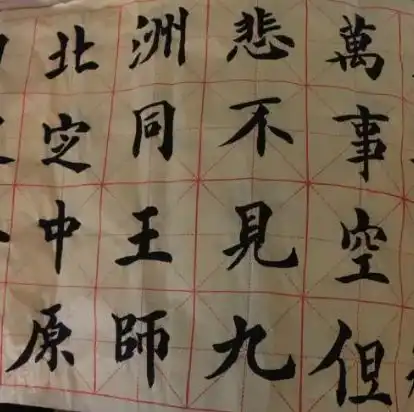 萬事空但
悲不見九
洲同王師
北定中原